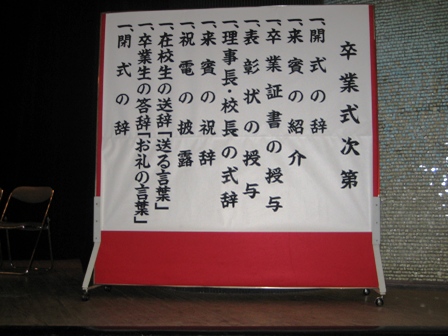 卒業式次第
一、開式の辞
一、来賓の紹介
一、卒業証書の授与
一、表彰状の授与
一、理事長・校長の式辞
一、来賓の祝辞
一、祝電の披露
一、在校生の送辞「送る言葉」
一、卒業生の答辞「お礼の言葉」
一、閉式の辞